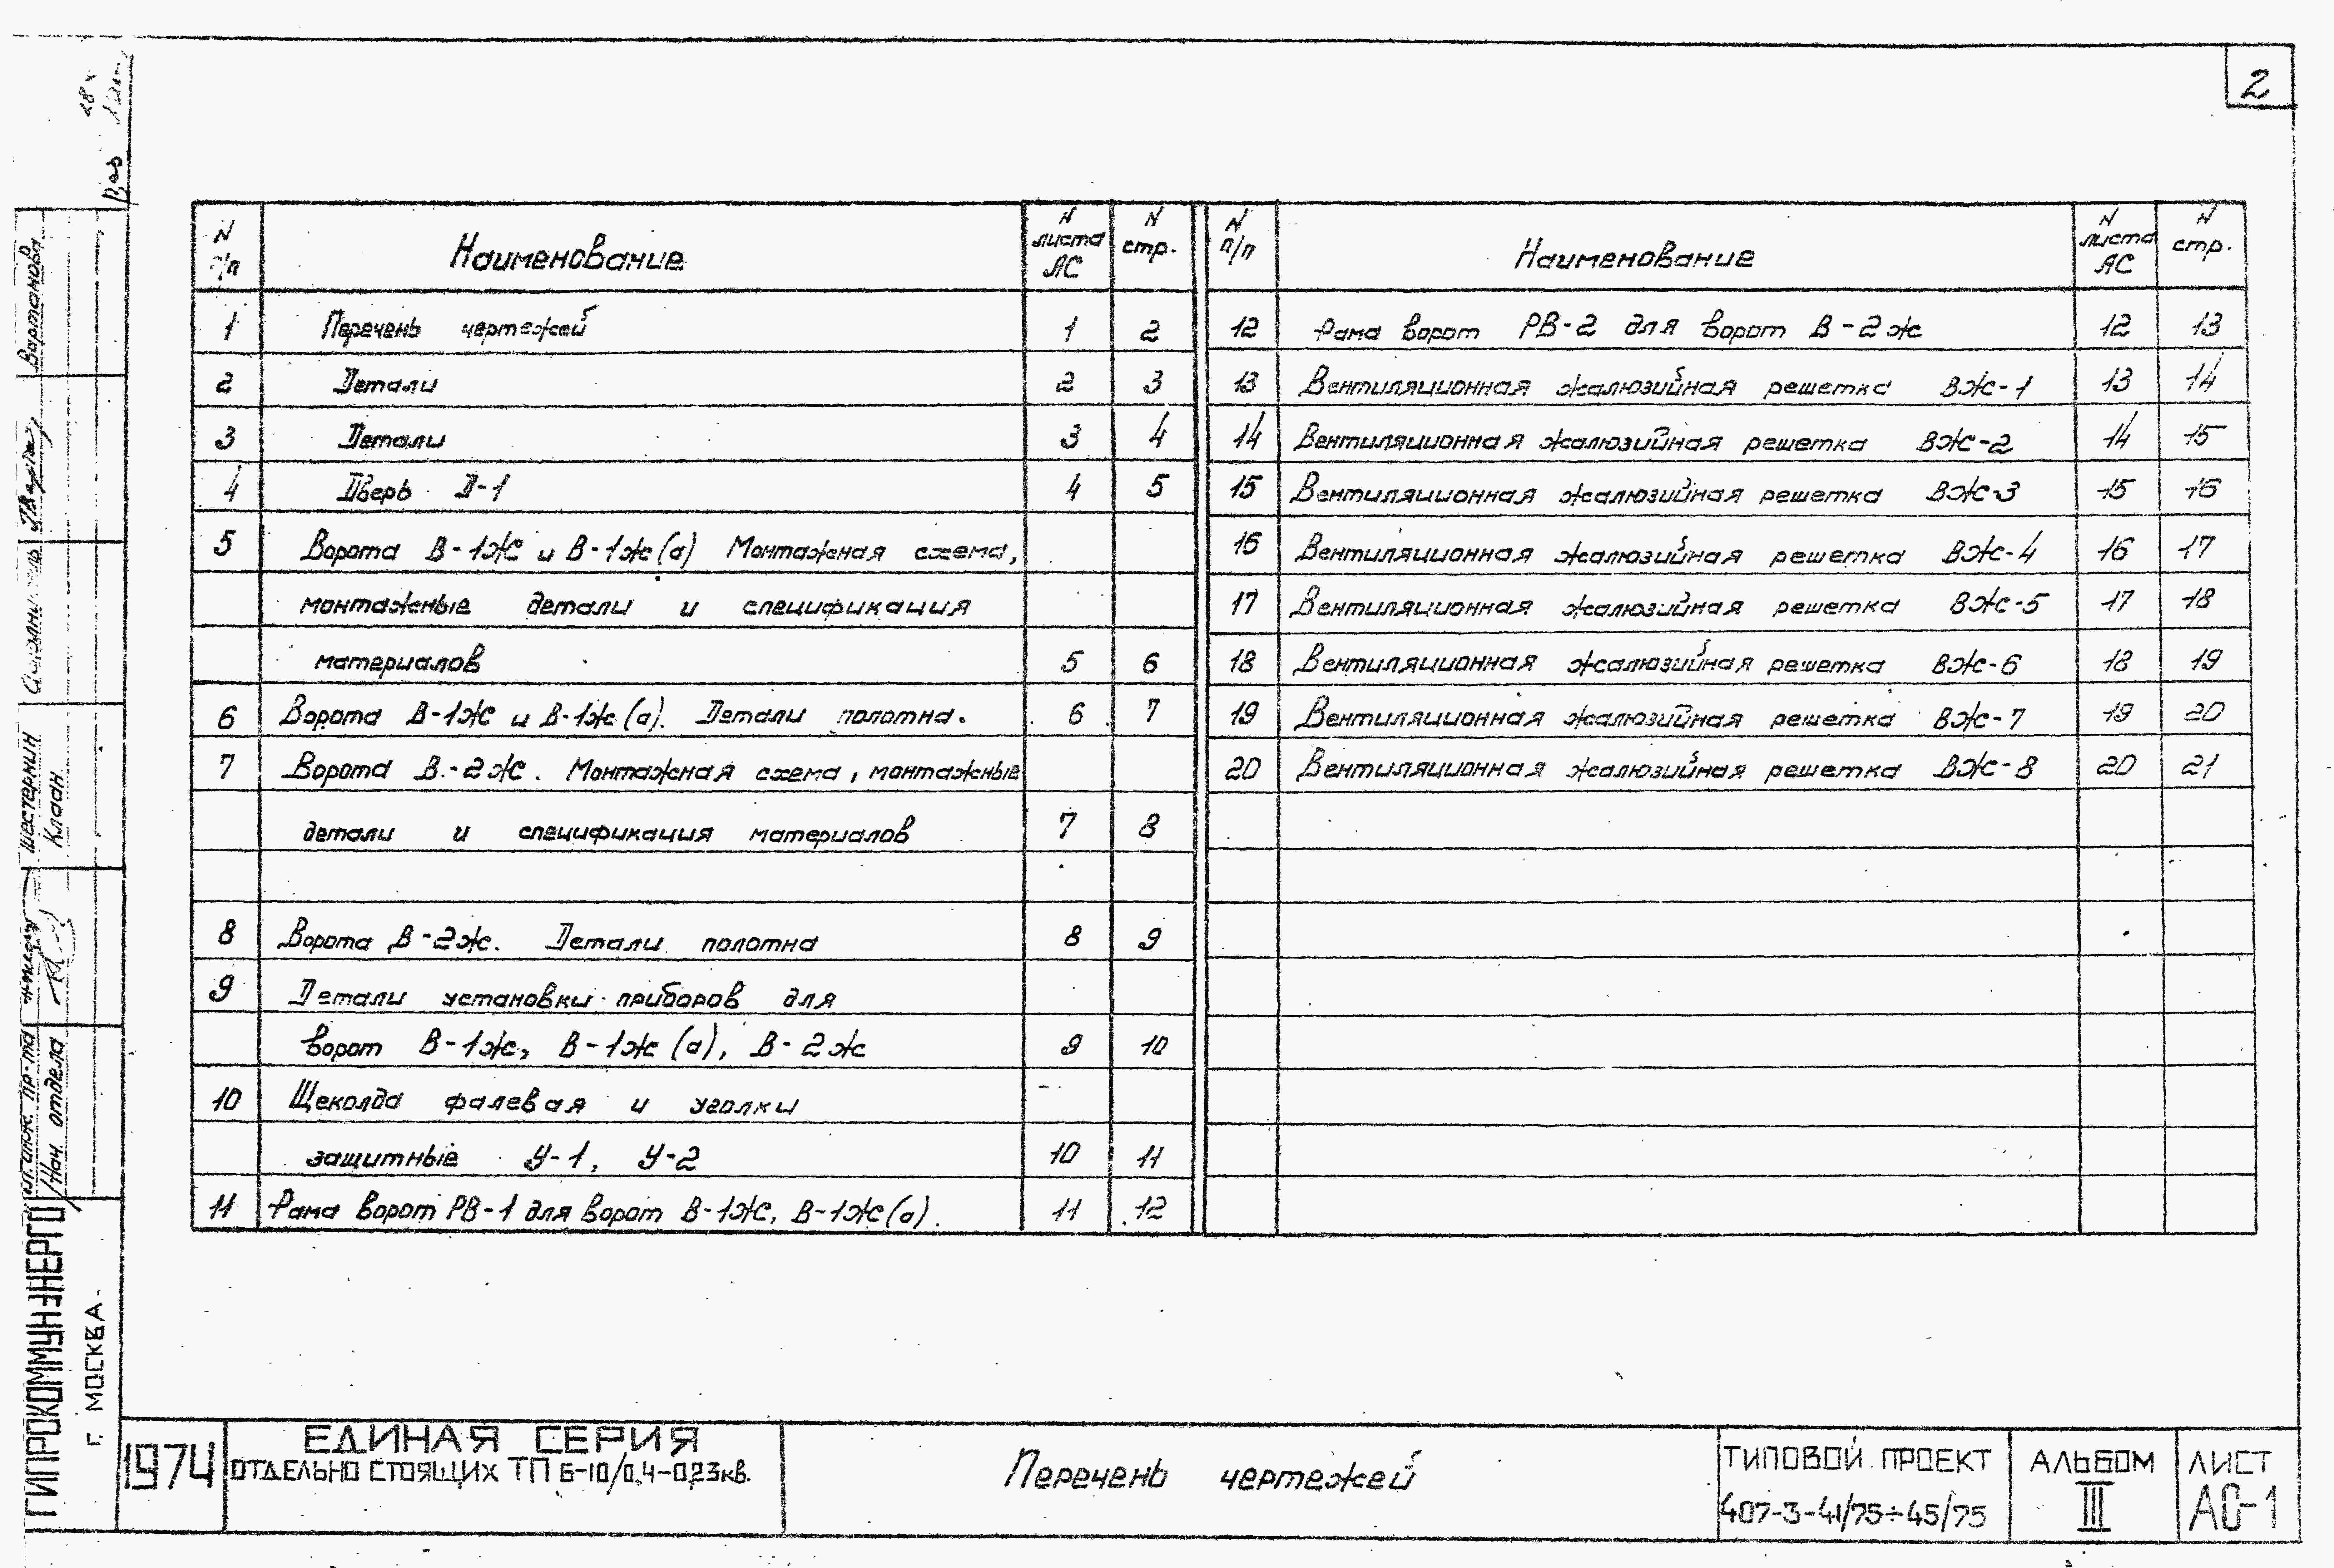 2
N п/п Наименование N листа АС N стр.
1 Перечень чертежей 1 2
2 Детали 2 3
3 Детали 3 4
4 Дверь Д-1 4 5
5 Ворота В-1Ж и В-1ж(а) Монтажная схема,
монтажные детали и спецификация
материалов 5 6
6 Ворота В-1Ж и В-1ж(а). Детали полотна. 6 7
7 Ворота В-2Ж. Монтажная схема, монтажные
детали и спецификация материалов 7 8
8 Ворота В-2ж. Детали полотна 8 9
9 Детали установки приборов для
ворот В-1ж, В-1ж(а), В-2ж 9 10
10 Щеколда фалевая и уголки
защитные У-1, У-2 10 11
11 Рама ворот РВ-1 для ворот В-1Ж, В-1Ж(а). 11 12
N п/п Наименование N листа АС N стр.
12 Рама ворот РВ-2 для ворот В-2ж 12 13
13 Вентиляционная жалюзийная решетка ВЖ-1 13 14
14 Вентиляционная жалюзийная решетка ВЖ-2 14 15
15 Вентиляционная жалюзийная решетка ВЖ-3 15 16
16 Вентиляционная жалюзийная решетка ВЖ-4 16 17
17 Вентиляционная жалюзийная решетка ВЖ-5 17 18
18 Вентиляционная жалюзийная решетка ВЖ-6 18 19
19 Вентиляционная жалюзийная решетка ВЖ-7 19 20
20 Вентиляционная жалюзийная решетка ВЖ-8 20 21
Вартанова
Шестернин
Клаан
Гл. инж. пр-та
Нач. отдела
ГИПРОКОММУНЭНЕРГО
Г. МОСКВА
1974
ЕДИНАЯ СЕРИЯ
ОТДЕЛЬНО СТОЯЩИХ ТП 6-10/0,4-0,23кв.
Перечень чертежей
ТИПОВОЙ ПРОЕКТ
407-3-41/75÷45/75
АЛЬБОМ
III
ЛИСТ
АС-1